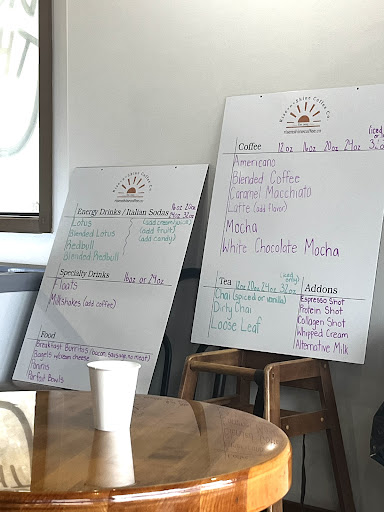 Energy Drinks / Italian Sodas 16oz 20oz
24oz 32oz
Lotus (add creamy/pico)
Blended Lotus (add fruit)
Redbull (add candy)
Blended Redbull
Specialty Drinks 16oz or 24oz
Floats
Milkshakes (add coffee)
Food
Breakfast Burritos (bacon, sausage, no meat)
Bagels w/cream cheese
Paninis
Parfait Bowls
Coffee 12oz 16oz 20oz 24oz 32oz
Americano
Blended Coffee
Caramel Macchiato
Latte (add flavor)
Mocha
White Chocolate Mocha
Tea 12oz 16oz 20oz 24oz 32oz
Chai (spiced or vanilla)
Dirty Chai
Loose Leaf
Addons
Espresso Shot
Protein Shot
Collagen Shot
Whipped Cream
Alternative Milk